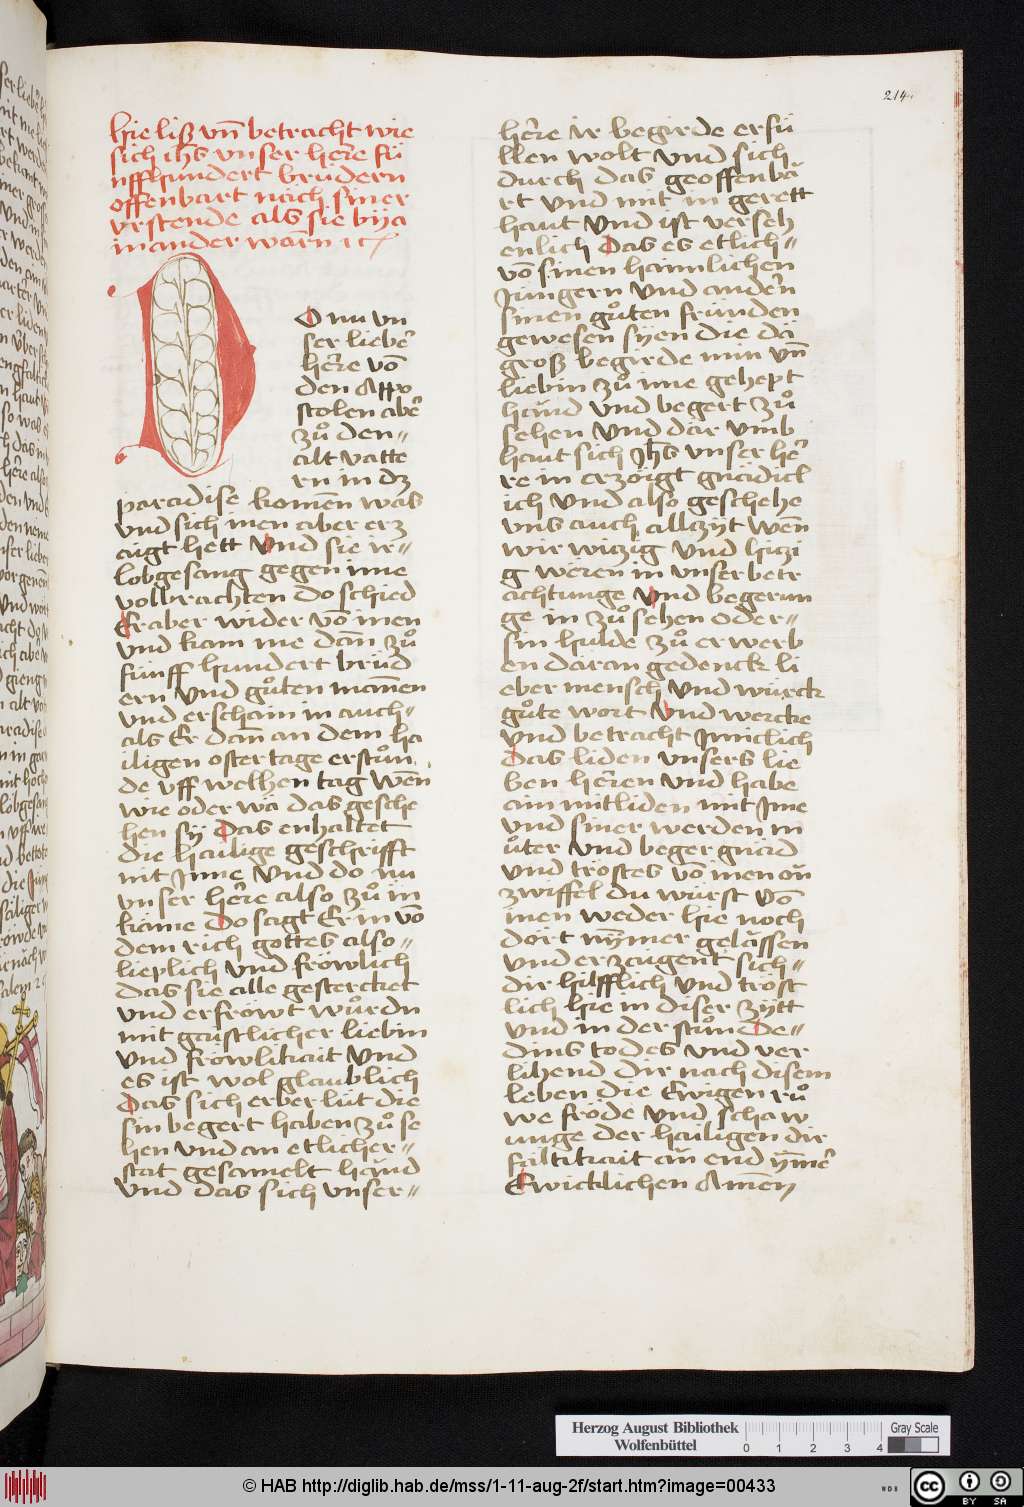 214.
Hie liß vn̄ betracht wie
sich ih̄s vnser here fü
nffhundert brüdern
offenbart näch siner
vrstende als sie bÿa
in ander warn̄ ꝛc
Do nu vn
ser lieber
here vō
den Appo
stolen aber
zů den⸗
alt vatte
rn in dz
paradise komen̄ was
vnd sich inen aber erz
äugt hett Vnd sie ir⸗
lobgesang gegen ime
volbrachten do schied
Er aber wider vō inen
vnd kam me dan̄ zů
fünff hundert brüd
ern Vnd gůten man̄en
vnd erschain in auch⸗
als Er dan̄ an dem ha
iligen ostertage erstůn
de vff welhen tag wen̄
wie oder wa das gesche
hen sÿ Das enhaltet
die hailige geschrifft
nit Inne Vnd do nu
vnser here also zů in
käme Do sagt Er in vō
dem rich gottes also⸗
lieplich Vnd fröwlich
das sie alle gestercket
vnd erfröwt wůrdn
mit gaistlicher liebin
Vnd fröwlikait Vnd
es ist wol glaublich
Das sich erber lüt die
sin begert haben zů se
hen Vnd an etlicher⸗
stat gesamelt händ
Vnd das sich vnser⸗
here ir begirde erfü
llen wolt Vnd sich
durch das geoffenbä
rt Vnd mit in gerett
haut Vnd ist verseh
enlich Das es etlich⸗
vō sinen haimlichen
Jüngern Vnd andern
sinen gůten fründen
gewesen sÿen die dä
groß begirde min vn̄
liebin zů ime gehept
händ Vnd begert zů
sehen Vnd där vmb
haut sich Ih̄s vnser he
re in erzöigt gnädicl
ich Vnd also geschehe
vns auch allzÿt wen̄
wir witzig Vnd hitzi
g weren in vnser betr
achtunge Vnd begerun
ge in zů sehen oder⸗
sin hulde zů erwerb
en däran gedenck li
eber mensch Vnd würck
gůte wort Vnd wercke
Vnd betracht Inniclich
Das liden vnsers lie
ben heren Vnd habe
ain mitliden mit Ime
Vnd siner werden m
ůter Vnd beger gnäd
Vnd trostes vō inen on̄
zwiffel du würst vō
inen weder hie noch
dört nÿmer gelässen
Vnd erzäugent sich⸗
dir hilfflich Vnd tröst
lich hie in diser zÿtt
Vnd in der stůnde⸗
dins todes Vnd ver
lihend dir nach disem
leben die Ewigen rů
we fröde Vnd schaw
unge der hailigen drÿ
faltikait on̄ end ÿmer
Ewicklichen Amen
Herzog August Bibliothek
Wolfenbüttel
0 1 2 3 4
Gray Scale
© HAB http://diglib.hab.de/mss/1-11-aug-2f/start.htm?image=00433
WDB
cc BY SA